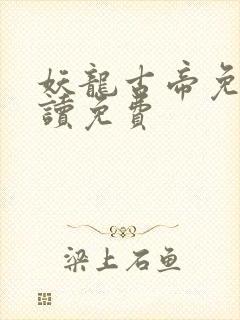 妖龍古帝免
讀免費
梁上石鱼